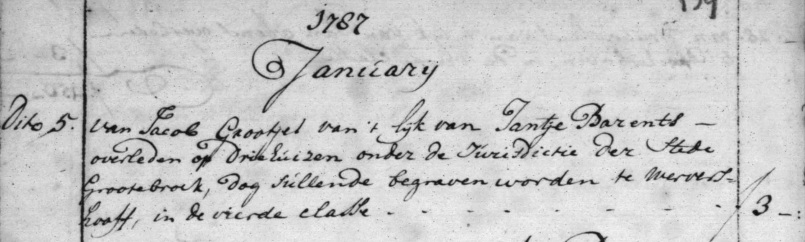 1787
139
January
Dito 5. van Jacob Grootjes van 't lijk van Jantje Barents –
overleden op Driehuizen onder de Jurisdictie der Stede
Grootebroek, dog sullende begraven worden te Wervers-
hooff, in de vierde classe - - - - - - - ƒ 3 –: